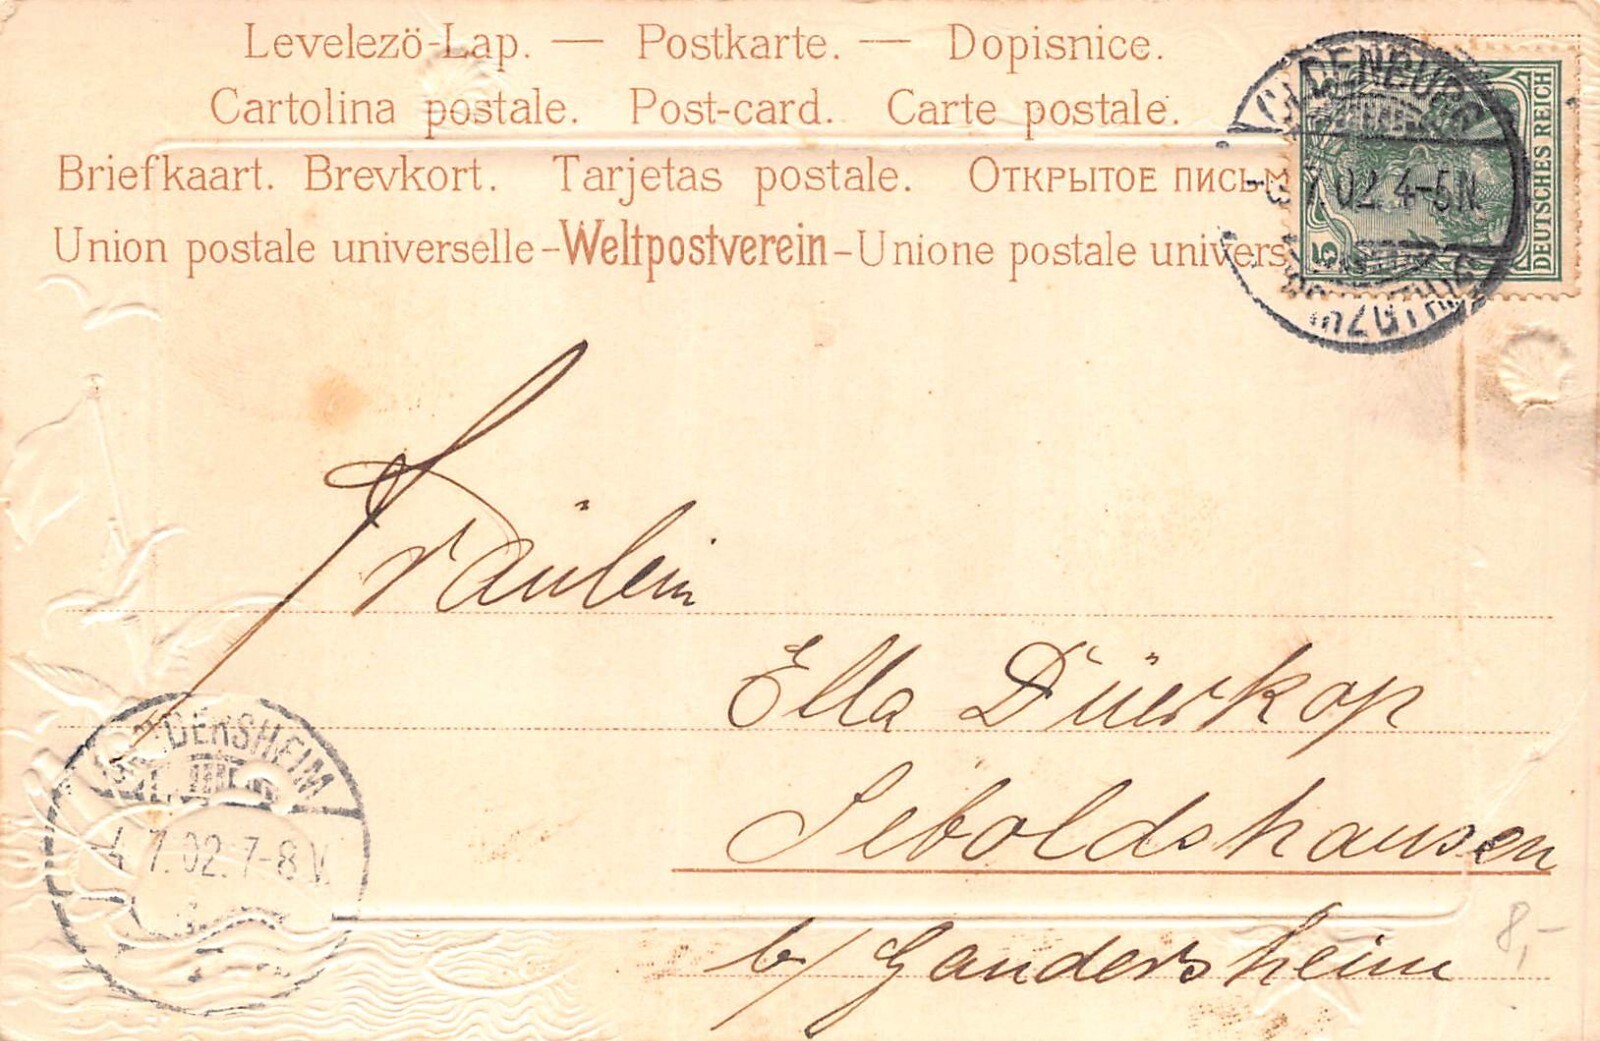 Levelezö-Lap. — Postkarte. — Dopisnice.
Cartolina postale. Post-card. Carte postale.
Briefkaart. Brevkort. Tarjetas postale. Открытое письм
Union postale universelle-Weltpostverein-Unione postale univers
OLDENBURG
3.7.02.4-5N.
5
DEUTSCHES REICH
Fräulein
Ella Düerkop
Seboldshausen
b/ Gandersheim
GANDERSHEIM
4.7.02.7-8V.
8,-